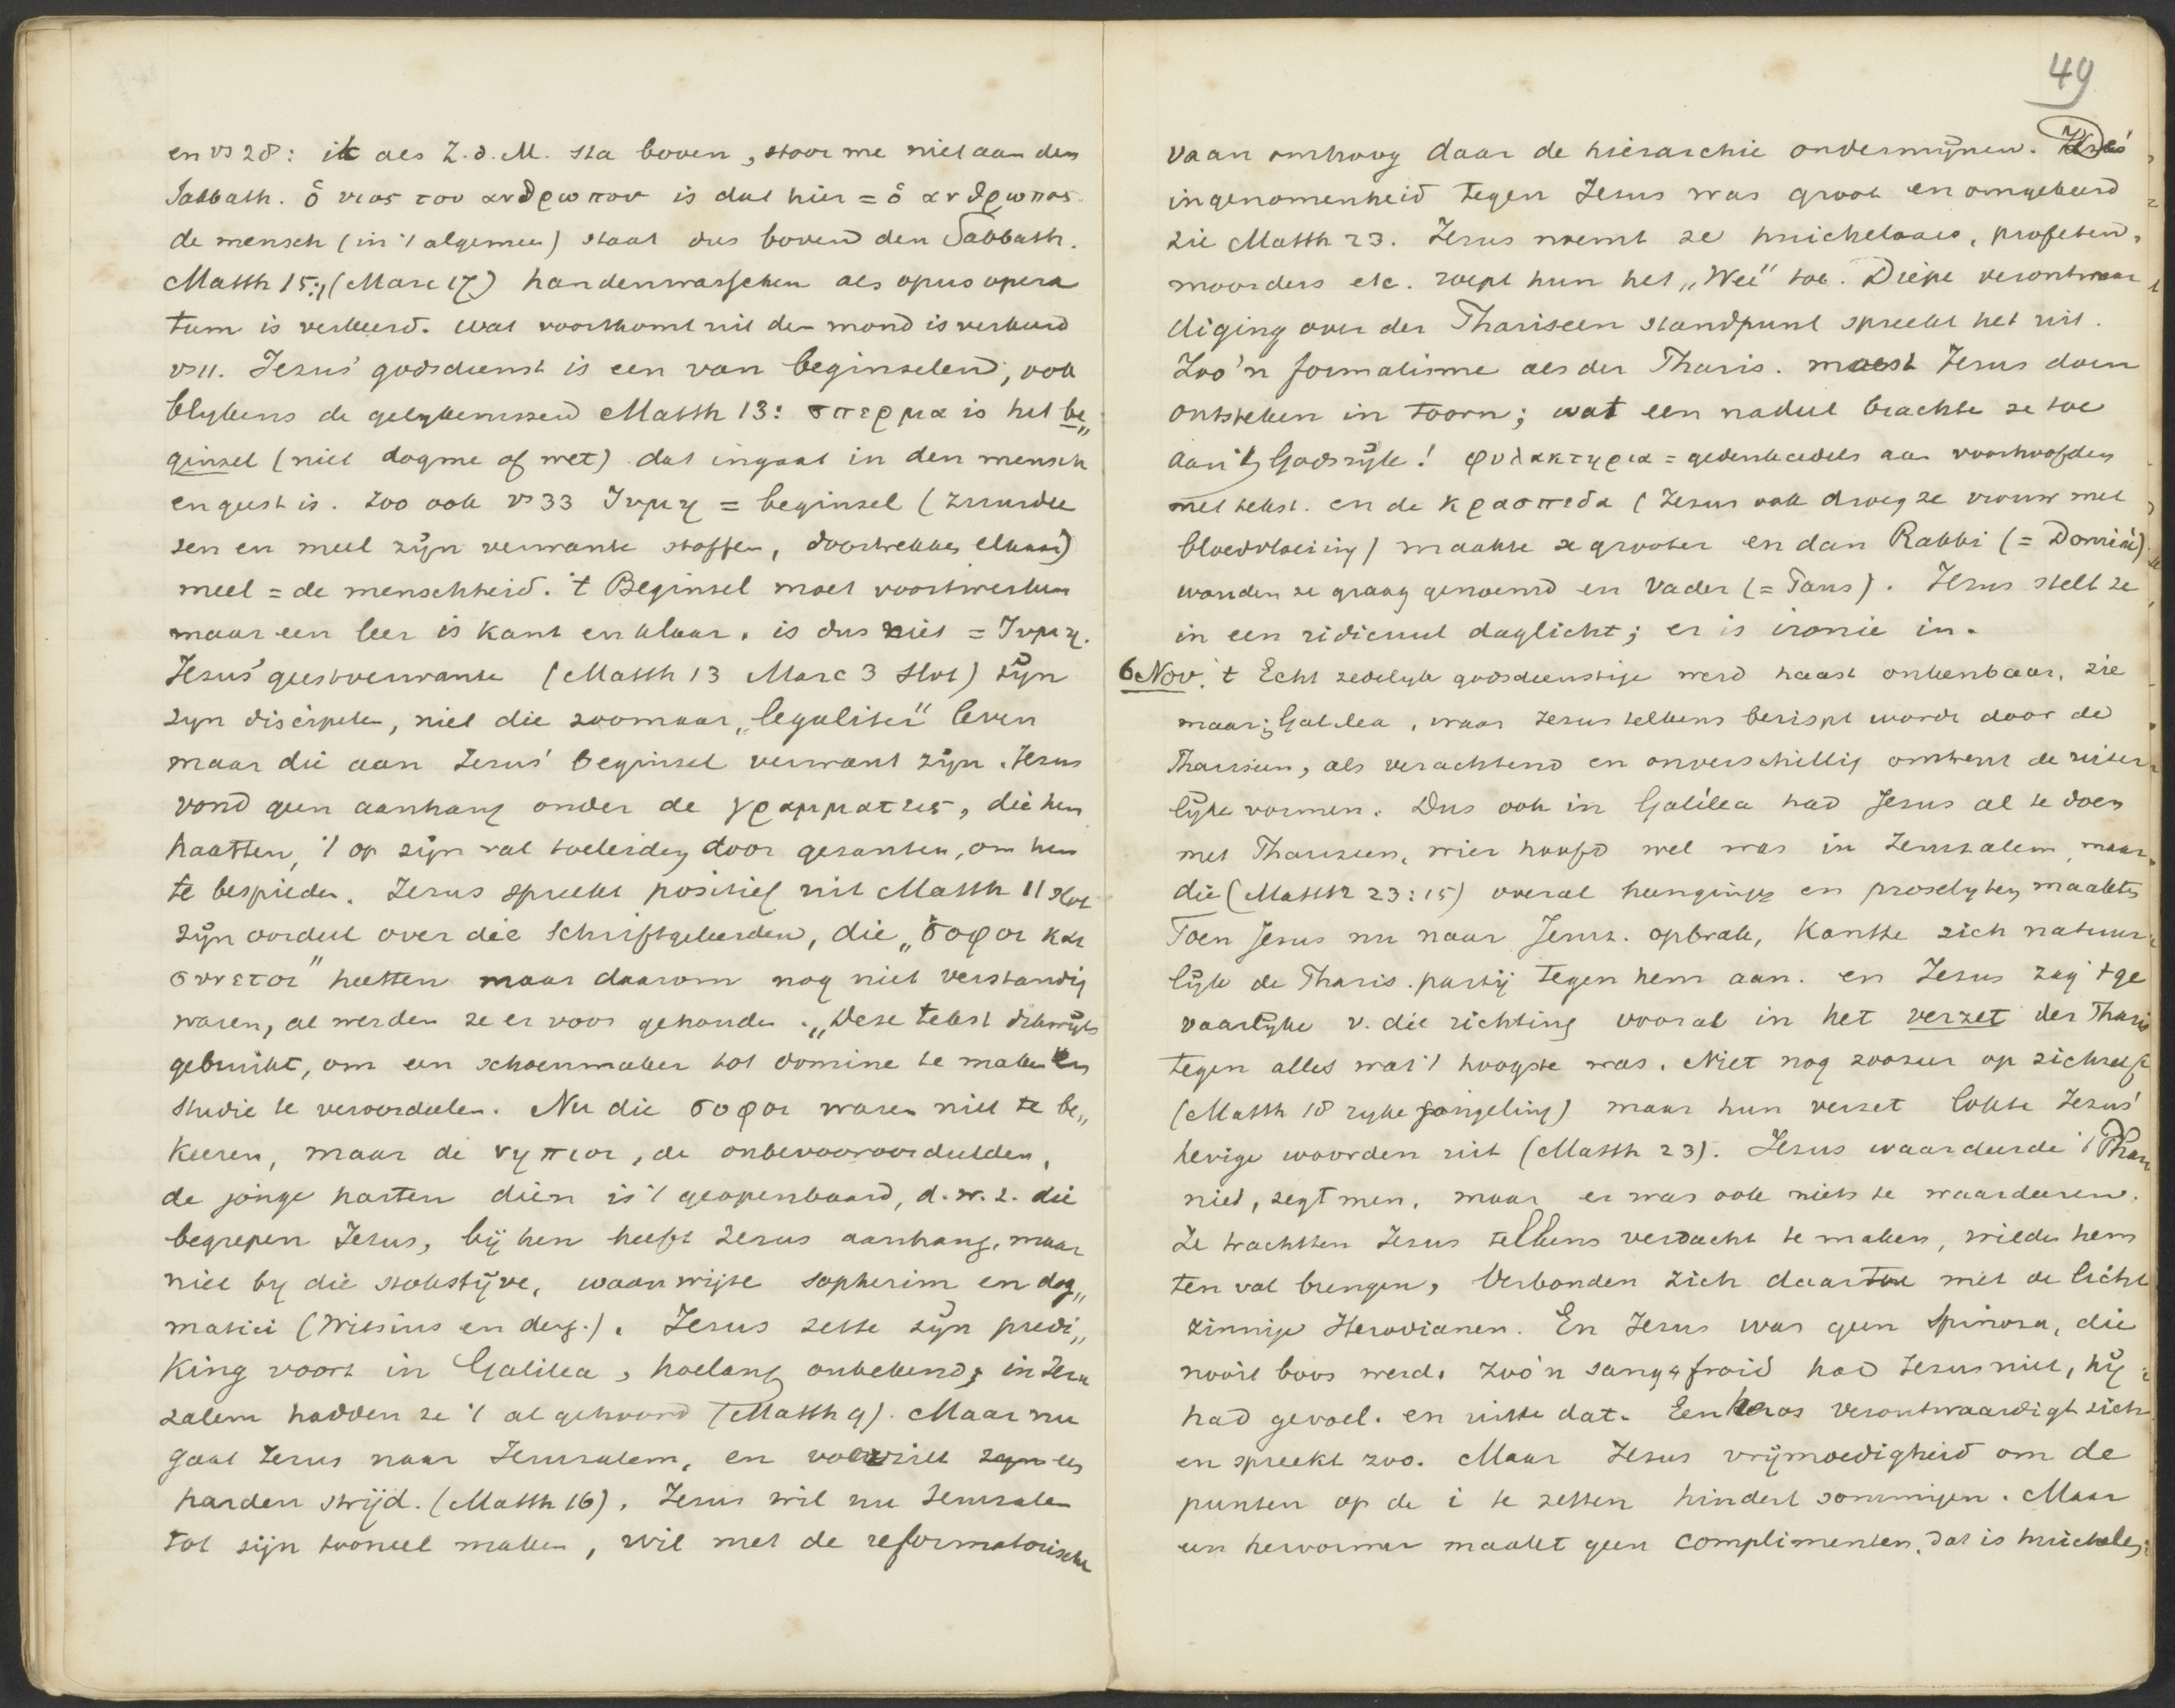 en vs 28: ik als Z.d.M. sta boven, stoor me niet aan den
Sabbath. ὁ υιος του ανθρωπου is dat hier = ὁ ανθρωπος.
de mensch (in 't algemeen) staat dus boven den Sabbath.
Matth 15:, (Marc 7) handenwasschen als opus opera
tum is verkeerd. wat voortkomt uit den mond is verkeerd
vs 11. Jezus' godsdienst is een van beginselen, ook
blykens de gelykenissen Matth 13: σπερμα is het be„
ginsel (niet dogme of wet) dat ingaat in den mensch
en geest is. zoo ook vs 33 ζυμη = beginsel (zuurdee
sen en meel zijn verwante stoffen, doortrekken elkaar)
meel = de menschheid. 't Beginsel moet voortwerken
maar een leer is kant en klaar, is dus niet = ζυμη.
Jezus' geestverwante (Matth 13 Marc 3 slot) zijn
zyn discipelen, niet die zoomaar „legaliter" leven
maar die aan Jezus' beginsel verwant zijn. Jezus
vond geen aanhang onder de γραμματεις, die hem
haatten, 't op zijn val toeleiden door gezanten, om hem
te bespieden. Jezus spreekt positief uit Matth 11 slot
zijn oordeel over die Schriftgeleerden, die „σοφοι και
συνετοι" heetten maar daarom nog niet verstandig
waren, al werden ze er voor gehouden. „Deze tekst dikwijls
gebruikt, om een schoenmaker tot domine te maken en
studie te veroordeelen. Nu die σοφοι waren niet te be„
keeren, maar de νηπιοι, de onbevooroordeelden,
de jonge harten dien is 't geopenbaard, d.w.z. die
begrepen Jezus, bij hen heeft Jezus aanhang, maar
niet by die stokstijve, waanwijze sopherim en dog„
matici (Witsius en derg.). Jezus zette zijn predi„
king voort in Galilea, hoelang onbekend; in Jeru
zalem hadden ze 't al gehoord (Matth 9). Maar nu
gaat Jezus naar Jeruzalem, en voorziet zyn en
harden strijd. (Matth 16). Jezus wil nu Jeruzalem
tot zijn tooneel maken, wil met de reformatorische
49
vaan omhoog daar de hierarchie ondermijnen.
ingenomenheid tegen Jezus was groot en omgekeerd
zie Matth 23. Jezus noemt ze huichelaars, profeten,
moorders etc. roept hun het „Wee" toe. Diepe verontwaar
diging over der Phariseen standpunt spreekt het uit.
Zoo'n formalisme als der Pharis. moest Jezus doen
ontsteken in toorn; wat een nadeel brachte ze toe
aan 't Godsrijk! φυλακτηρια = gedenkcedels aan voorhoofden
met tekst. en de κρασπεδα (Jezus ook droeg ze vrouw met
bloedvloeiing) maakte ze grooter en dan Rabbi (= Dominé)
wouden ze graag genoemd en Vader (= Paus). Jezus stelt ze
in een ridicuul daglicht; er is ironie in.
6 Nov. 't Echt zedelyk godsdienstige werd haast onkenbaar, zie
maar; Galilea, waar Jezus telkens berispt wordt door de
Phariseen, als verachtend en onverschillig omtrent de uiter
lijke vormen. Dus ook in Galilea had Jezus al te doen
met Phariseen, wier hoofd wel was in Jeruzalem, maar
die (Matth 23:15) overal heengingen en proselyten maakten
Toen Jezus nu naar Jeruz. opbrak, kantte zich natuur
lijk de Pharis. partij tegen hem aan. en Jezus zag 't ge
vaarlijke v. die richting vooral in het verzet der Pharis
tegen alles wat 't hoogste was. Niet nog zoozeer op zichzelf
(Matth 18 ryke jongeling) maar hun verzet lokte Jezus'
hevige woorden uit (Matth 23). Jezus waardeerde 't Phar
niet, zegt men, maar er was ook niets te waardeeren.
Ze trachtten Jezus telkens verdacht te maken, wilden hem
ten val brengen, verbonden zich daartoe met de licht
zinnige Herodianen. En Jezus was geen Spinoza, die
nooit boos werd. zoo'n sang froid had Jezus niet, hij
had gevoel. en uitte dat. Een heros verontwaardigt zich
en spreekt zoo. Maar Jezus vrijmoedigheid om de
punten op de i te zetten hindert sommigen. Maar
een hervormer maakt geen complimenten, dat is huichelen